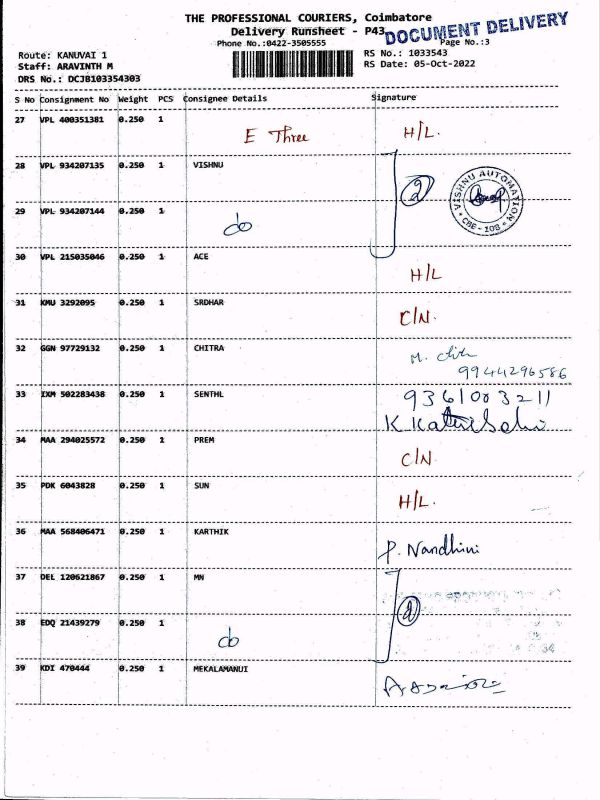 THE PROFESSIONAL COURIERS, Coimbatore
Delivery Runsheet - P43
DOCUMENT DELIVERY
Phone No.:0422-3505555
Page No.:3
Route: KANUVAI 1
RS No.: 1033543
Staff: ARAVINTH M
RS Date: 05-Oct-2022
DRS No.: DCJB103354303
S No Consignment No Weight PCS Consignee Details Signature
27 VPL 400351381 0.250 1 E Three H/L.
28 VPL 934207135 0.250 1 VISHNU
2
VISHNU AUTOMATION
CBE - 108
29 VPL 934207144 0.250 1 do
30 VPL 215035046 0.250 1 ACE H/L
31 KMU 3292095 0.250 1 SRDHAR C/N.
32 GGN 97729132 0.250 1 CHITRA
9944296586
33 IXM 502283438 0.250 1 SENTHL 9361003211
34 MAA 294025572 0.250 1 PREM C/N
35 PDK 6043828 0.250 1 SUN H/L.
36 MAA 568406471 0.250 1 KARTHIK P. Nandhini
37 DEL 120621867 0.250 1 MN
2
38 EDQ 21439279 0.250 1 do
39 KDI 470444 0.250 1 MEKALAMANUI